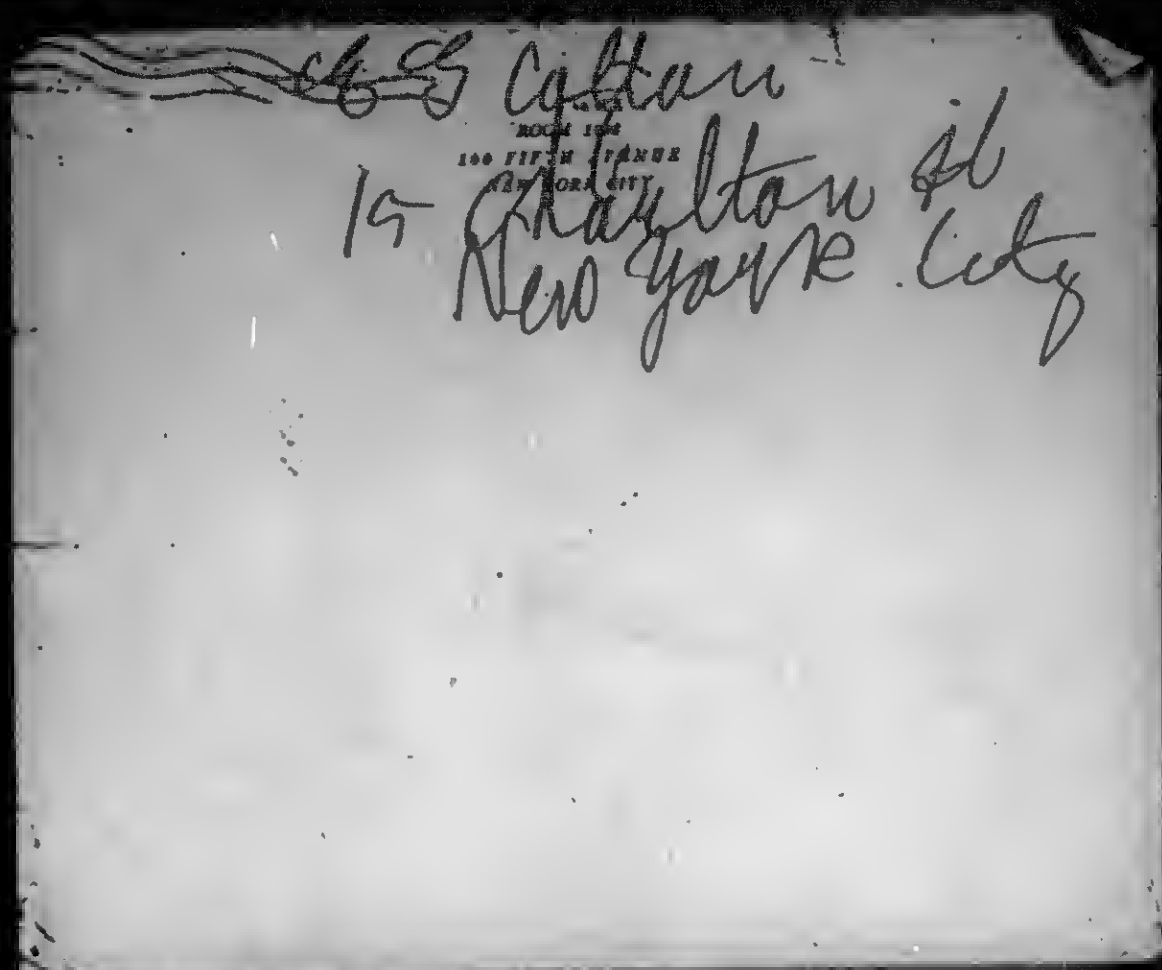 Colton
ROOM
100 FIFTH AVENUE
NEW YORK CITY
15 Charlton St
New York City